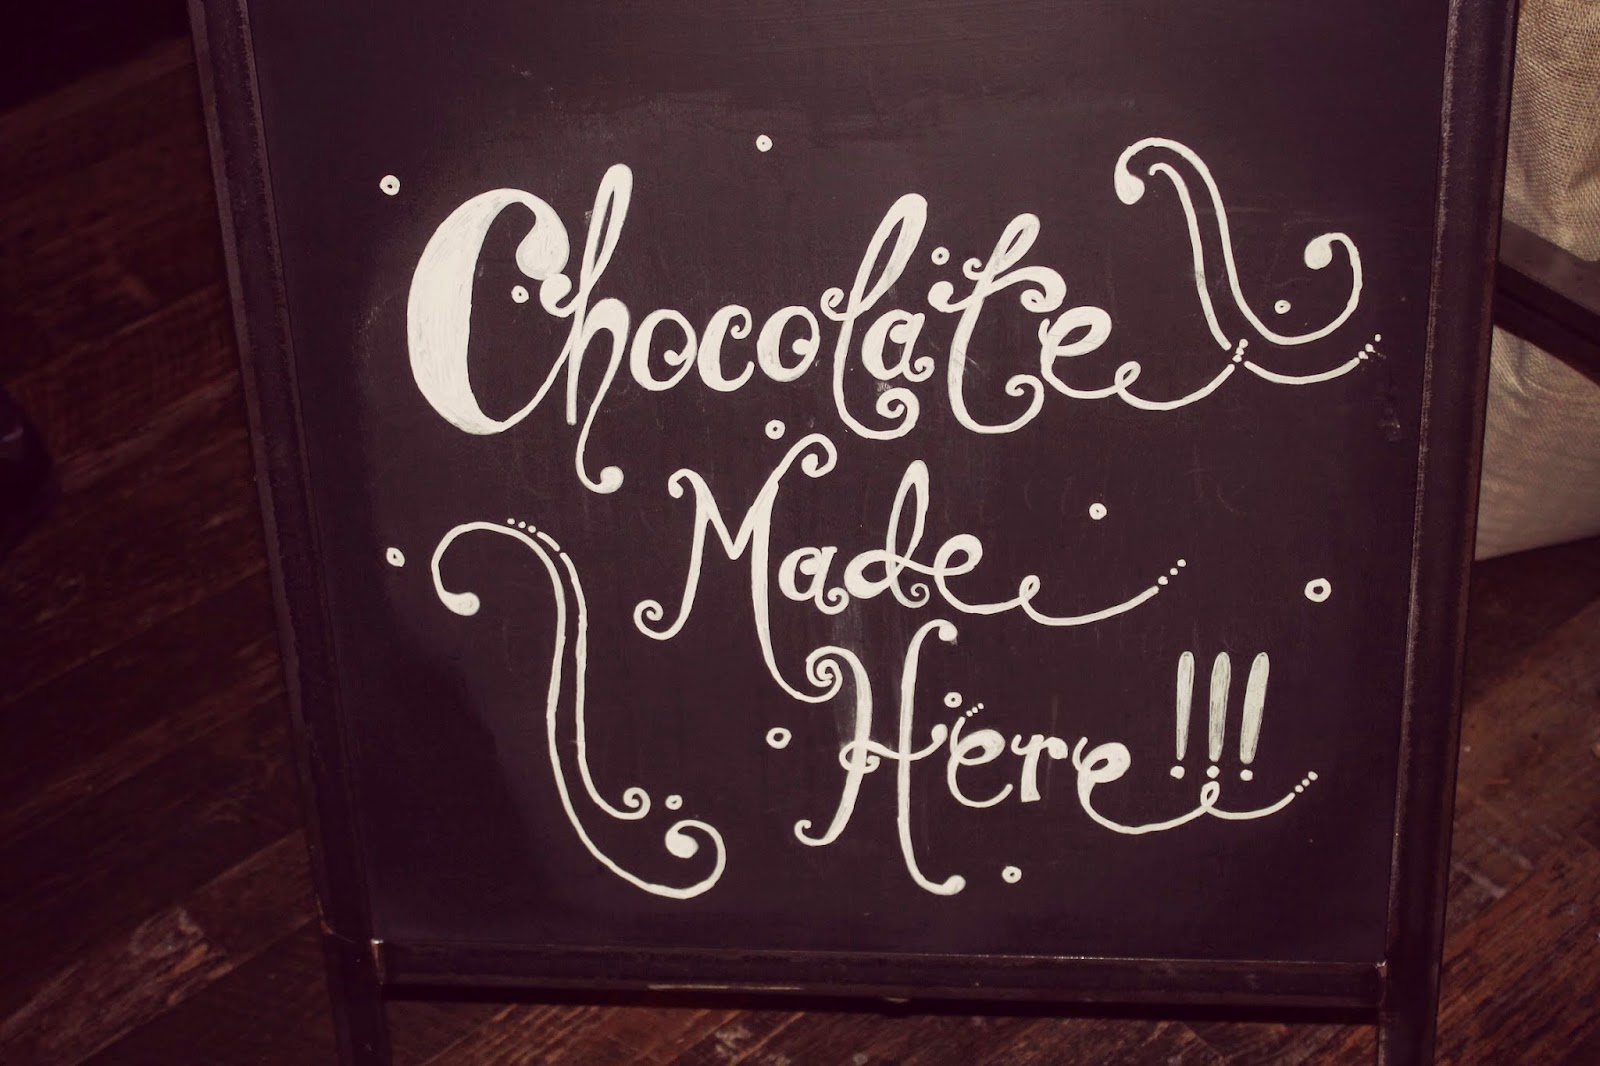 Chocolate
Made
Here!!!